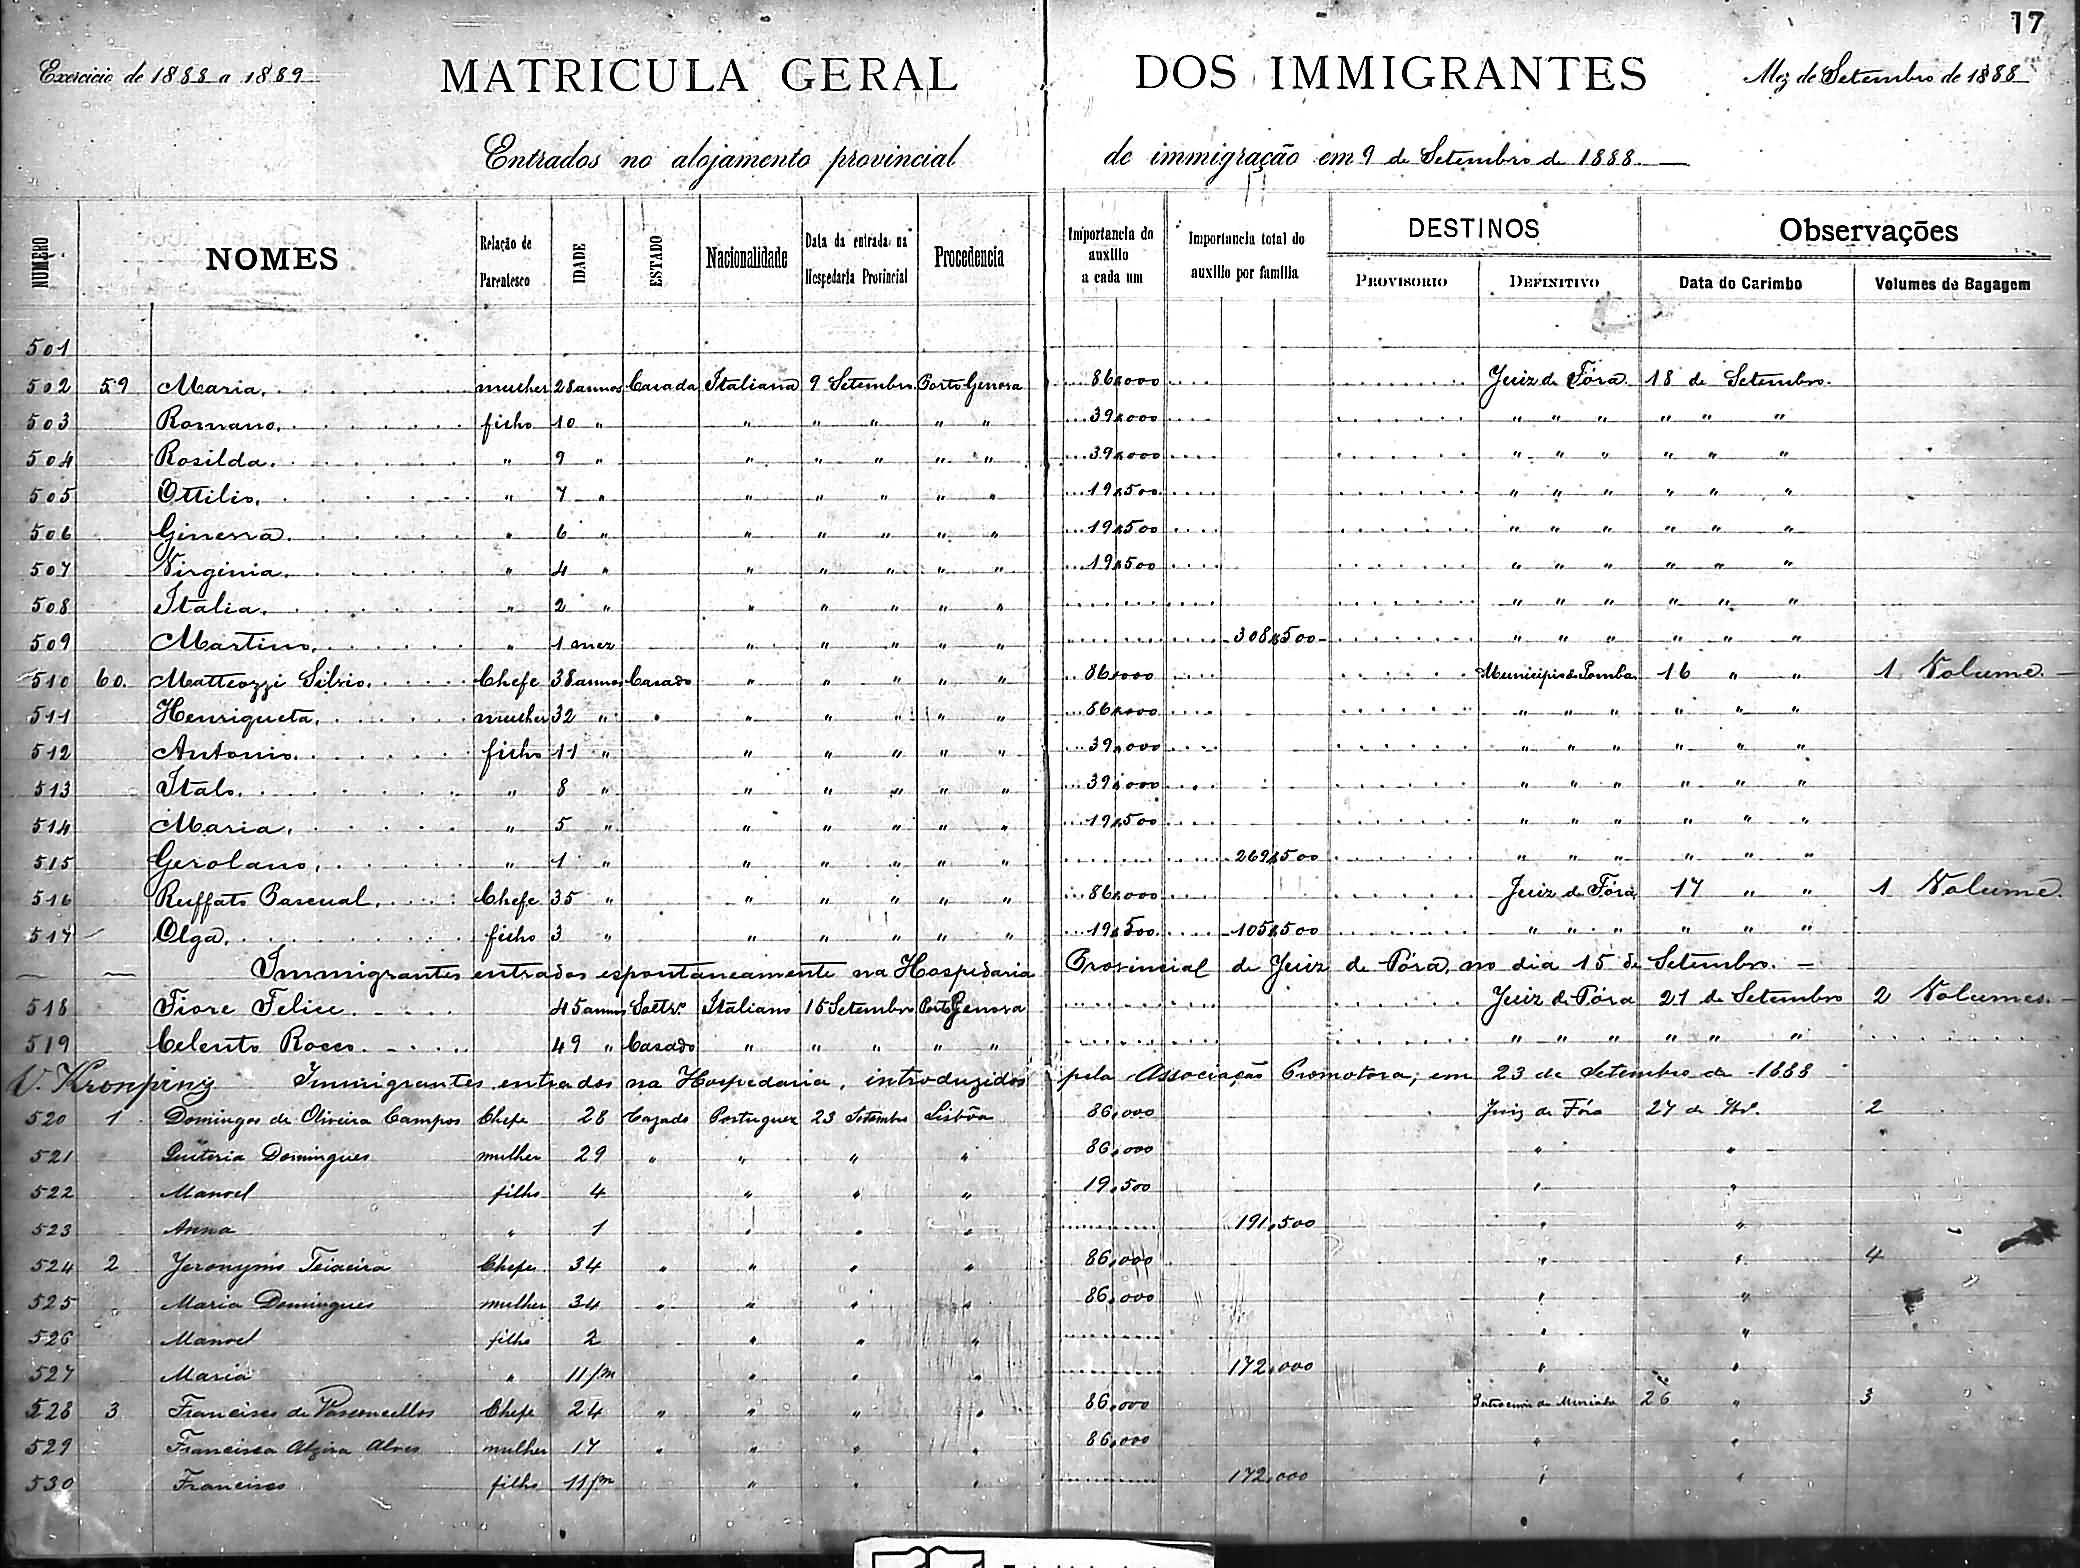 17
Exercicio de 1888 a 1889 MATRICULA GERAL DOS IMMIGRANTES Mez de Setembro de 1888
Entrados no alojamento provincial de immigração em 9 de Setembro de 1888
NUMERO NOMES Relação de Parentesco IDADE ESTADO Nacionalidade Data da entrada na Hespedaria Provincial Procedencia Importancia do auxilio a cada um Importancia total do auxilio por familia DESTINOS Observações
PROVISORIO DEFINITIVO Data do Carimbo Volumes de Bagagem
501
502 59 Maria. mulher 28 annos Casada Italiana 9 Setembro Porto Genova 86$000 Juiz de Fóra. 18 de Setembro.
503 Romano. filho 10 " " " " " " 39$000 " " " " " "
504 Rosilda. " 9 " " " " " " 39$000 " " " " " "
505 Ottilio. " 7 " " " " " " 19$500 " " " " " "
506 Ginevra. " 6 " " " " " " 19$500 " " " " " "
507 Virginia. " 4 " " " " " " 19$500 " " " " " "
508 Italia. " 2 " " " " " " " " " " " "
509 Martino. " 1 mez " " " " " 308$500 " " " " " "
510 60. Matteozzi Silvio. Chefe 38 annos Casado " " " " " 86$000 Municipio de Pomba 16 " " 1 Volume.
511 Henriqueta. mulher 32 " " " " " " " 86$000 " " " " " "
512 Antonio. filho 11 " " " " " " 39$000 " " " " " "
513 Italo. " 8 " " " " " " 39$000 " " " " " "
514 Maria. " 5 " " " " " " 19$500 " " " " " "
515 Gerolano. " 1 " " " " " " 269$500 " " " " " "
516 Ruffato Pascual. Chefe 35 " " " " " " 86$000 Juiz de Fóra 17 " " 1 Volume.
517 Olga. filho 3 " " " " " " 19$500 105$500 " " " " " "
Immigrantes entrados espontaneamente na Hospedaria Provincial de Juiz de Fóra, no dia 15 de Setembro.
518 Fiore Felice. 45 annos Soltro. Italiano 15 Setembro Porto Genova Juiz de Fóra 21 de Setembro 2 Volumes.
519 Celento Rocco. 49 " Casado " " " " " " " " " " "
V. Kronpring Immigrantes entrados na Hospedaria, introduzidos pela Associação Promotora, em 23 de Setembro de 1888
520 1 Domingos de Oliveira Campos Chefe 28 Cazado Portuguez 23 Setembro Lisbôa 86,000 Juiz de Fóra 27 de 2
521 Quiteria Domingues mulher 29 " " " " 86,000 " "
522 Manoel filho 4 " " " 19,500 " "
523 Anna " 1 " " " 191,500 " "
524 2 Jeronymo Teixeira Chefe 34 " " " " 86,000 " " 4
525 Maria Domingues mulher 34 " " " " 86,000 " "
526 Manoel filho 2 " " " " "
527 Maria " 11/m " " " 172,000 " "
528 3 Francisco de Vasconcellos Chefe 24 " " " " 86,000 26 " 3
529 Francisca Alzira Alves mulher 17 " " " " 86,000 " "
530 Francisco filho 11/m " " " 172,000 " "